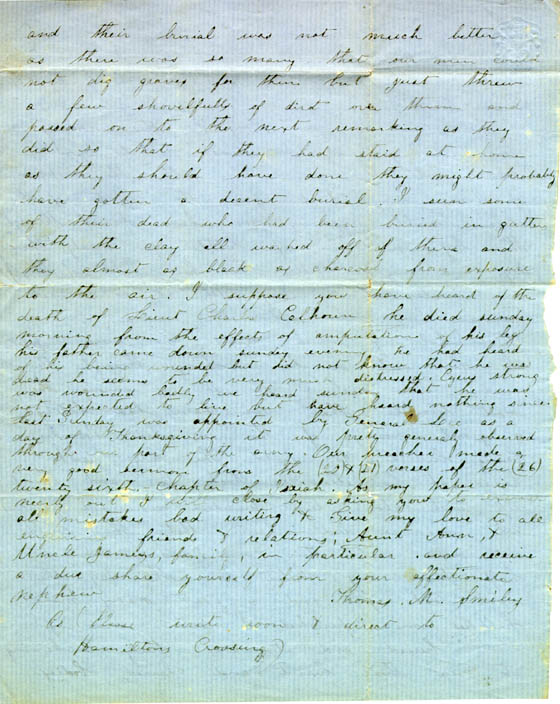 and their burial was not much better
as there was so many that our men could
not dig graves for them but just threw
a few shovelfulls of dird over them and
passed on to the next remarking as they
did so that if they had staid at home
as they should have done they might probably
have gotten a desent burial. I seen some
of their dead who had been buried in gutters
with the clay all washed off of them and
they almost as black as charcoal from exposure
to the air. I suppose you have heard of the
death of Lieut Calhoun he died sunday
morning from the effects of amputation of his leg
his father came down sunday evening he had heard
of his being wounded but did not know that he was
dead he seems to be very much distressed. strong
was wounded badly we heard sunday that he was
not expected to live but have heard nothing since
last Sunday was appointed by General Lee as a
day of Thanksgiving it was pretty generally observed
through our part of the army. Our preacher made a
very good sermon from the (20) & (21) verses of the (26)
twenty sixth chapter of Isaiah. As my paper is
nearly out I will close by asking you to
all mistakes bad writing & Give my love to all
enquiring friends & relations; Aunt Ann, &
Uncle Jameys, family, in particular and receive
a due share yourself from your affectionate
nephew Thomas. M. Smiley
Ps (Please write soon & direct to
Hamiltons Crossing)